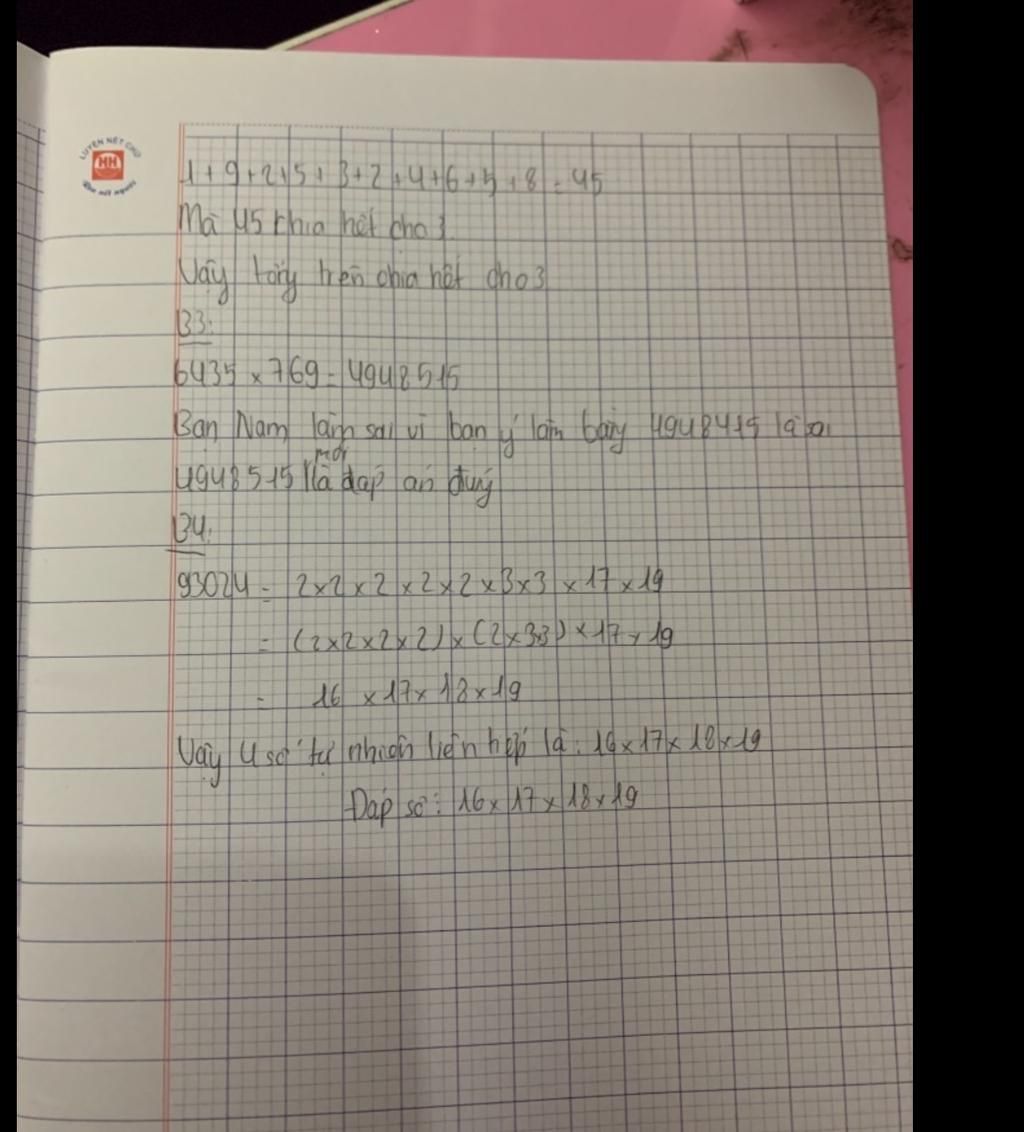 LUYỆN NÉT CHỮ
HH
Rèn nết người
1+9+2+5+3+2+4+6+5+8=45
Mà 45 chia hết cho 3
Vậy tổng trên chia hết cho 3
B3:
6435 x 769 = 4948515
Bạn Nam làm sai vì bạn ý làm bằng 4948415 là sai
mới
4948515 là đáp án đúng
B4:
93024 = 2x2x2x2x2x3x3x17x19
= (2x2x2x2)x(2x3x3)x17x19
= 16 x17x18x19
Vậy 4 số tự nhiên liên tiếp là: 16x17x18x19
Đáp số: 16x17x18x19